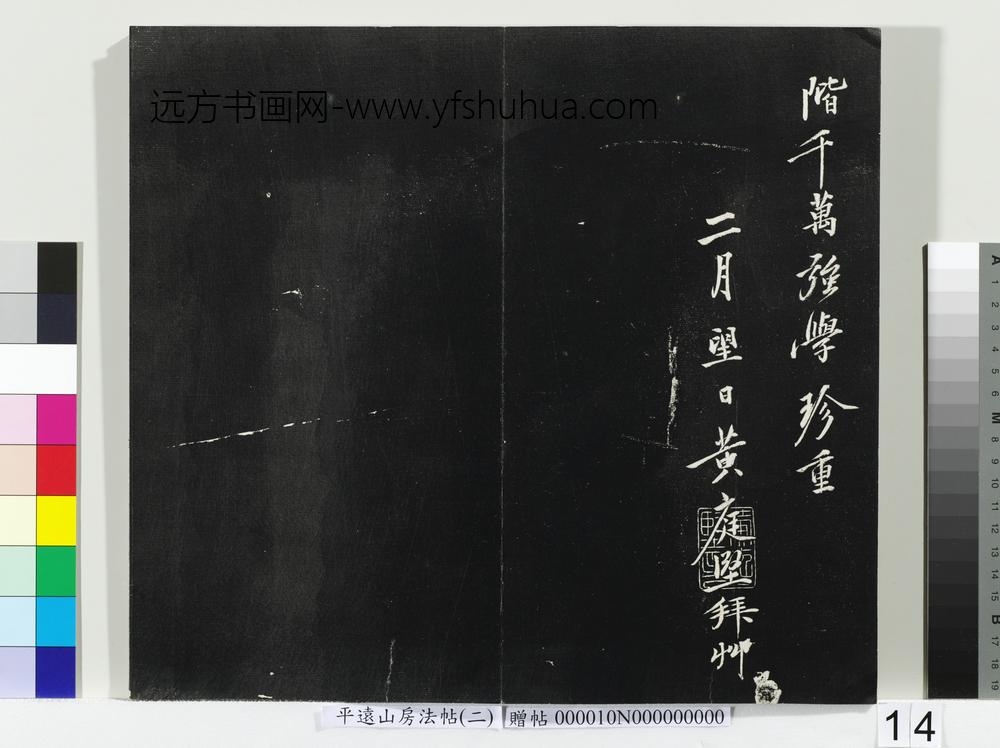 远方书画网-www.yfshuhua.com
階千萬強學珍重
二月望日黃庭堅拜艸
平遠山房法帖(二) 贈帖 000010N000000000
14
A 1 2 3 4 5 6 M 8 9 10 11 12 13 14 15 B 17 18 19